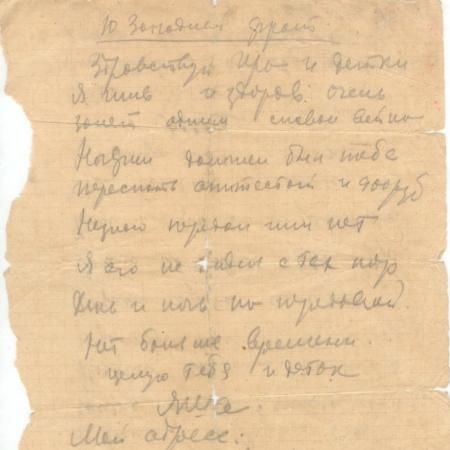 Ю Западный фронт
Здравствуй Ира и детки
Я жив и здоров. очень
занят одним словом война
должен был тебе
переслать аттестат и 900 руб
передал или нет
Я его не видел с тех пор
День и ночь на передовой.
Нет больше времени.
целую тебя и деток
Яша.
Мой адрес: